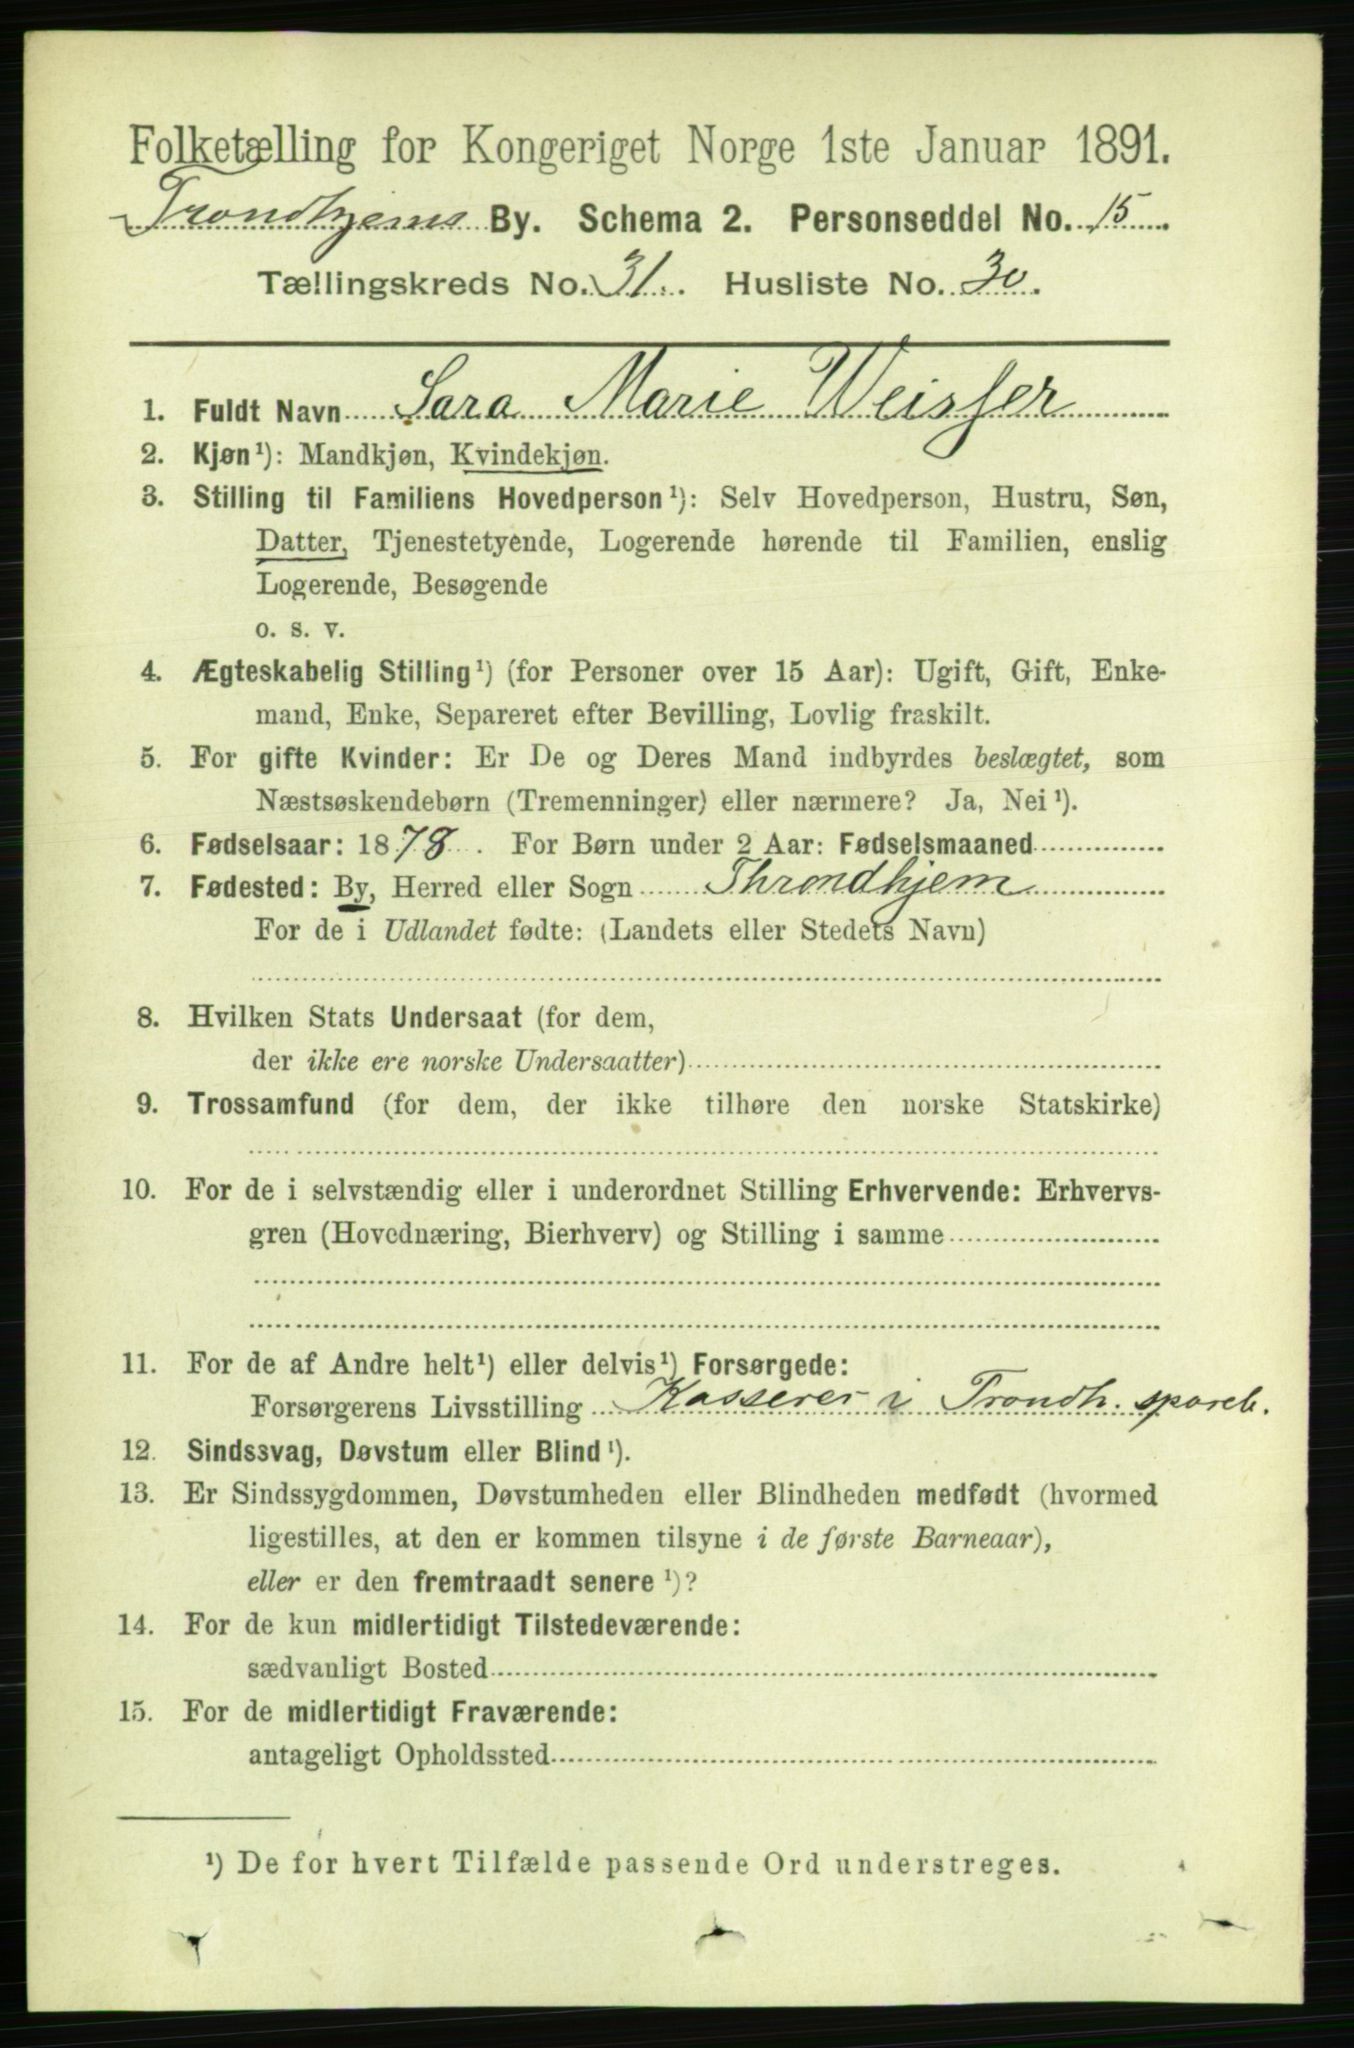 Folketælling for Kongeriget Norge 1ste Januar 1891.
Trondhjems By. Schema 2. Personseddel No. 15
Tællingskreds No. 31. Husliste No. 30.
1. Fuldt Navn Sara Marie Weisser
2. Kjøn¹): Mandkjøn, Kvindekjøn.
3. Stilling til Familiens Hovedperson¹): Selv Hovedperson, Hustru, Søn,
Datter, Tjenestetyende, Logerende hørende til Familien, enslig
Logerende, Besøgende
o. s. v.
4. Ægteskabelig Stilling¹) (for Personer over 15 Aar): Ugift, Gift, Enke-
mand, Enke, Separeret efter Bevilling, Lovlig fraskilt.
5. For gifte Kvinder: Er De og Deres Mand indbyrdes beslægtet, som
Næstsøskendebørn (Tremenninger) eller nærmere? Ja, Nei¹).
6. Fødselsaar: 1878. For Børn under 2 Aar: Fødselsmaaned
7. Fødested: By, Herred eller Sogn Throndhjem
For de i Udlandet fødte: (Landets eller Stedets Navn)
8. Hvilken Stats Undersaat (for dem,
der ikke ere norske Undersaatter)
9. Trossamfund (for dem, der ikke tilhøre den norske Statskirke)
10. For de i selvstændig eller i underordnet Stilling Erhvervende: Erhvervs-
gren (Hovednæring, Bierhverv) og Stilling i samme
11. For de af Andre helt¹) eller delvis¹) Forsørgede:
Forsørgerens Livsstilling Kasserer i Trondh. spareb.
12. Sindssvag, Døvstum eller Blind¹).
13. Er Sindssygdommen, Døvstumheden eller Blindheden medfødt (hvormed
ligestilles, at den er kommen tilsyne i de første Barneaar),
eller er den fremtraadt senere¹)?
14. For de kun midlertidigt Tilstedeværende:
sædvanligt Bosted
15. For de midlertidigt Fraværende:
antageligt Opholdssted
¹) De for hvert Tilfælde passende Ord understreges.